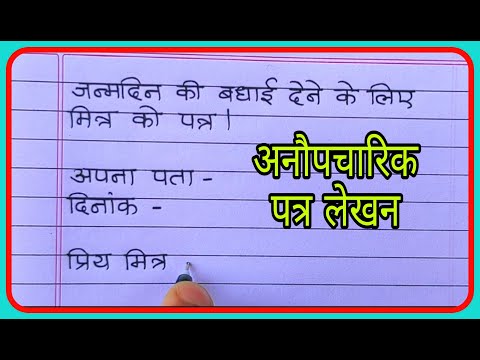 जन्मदिन की बधाई देने के लिए
मित्र को पत्र।
अनौपचारिक
पत्र लेखन
अपना पता -
दिनांक -
प्रिय मित्र ,